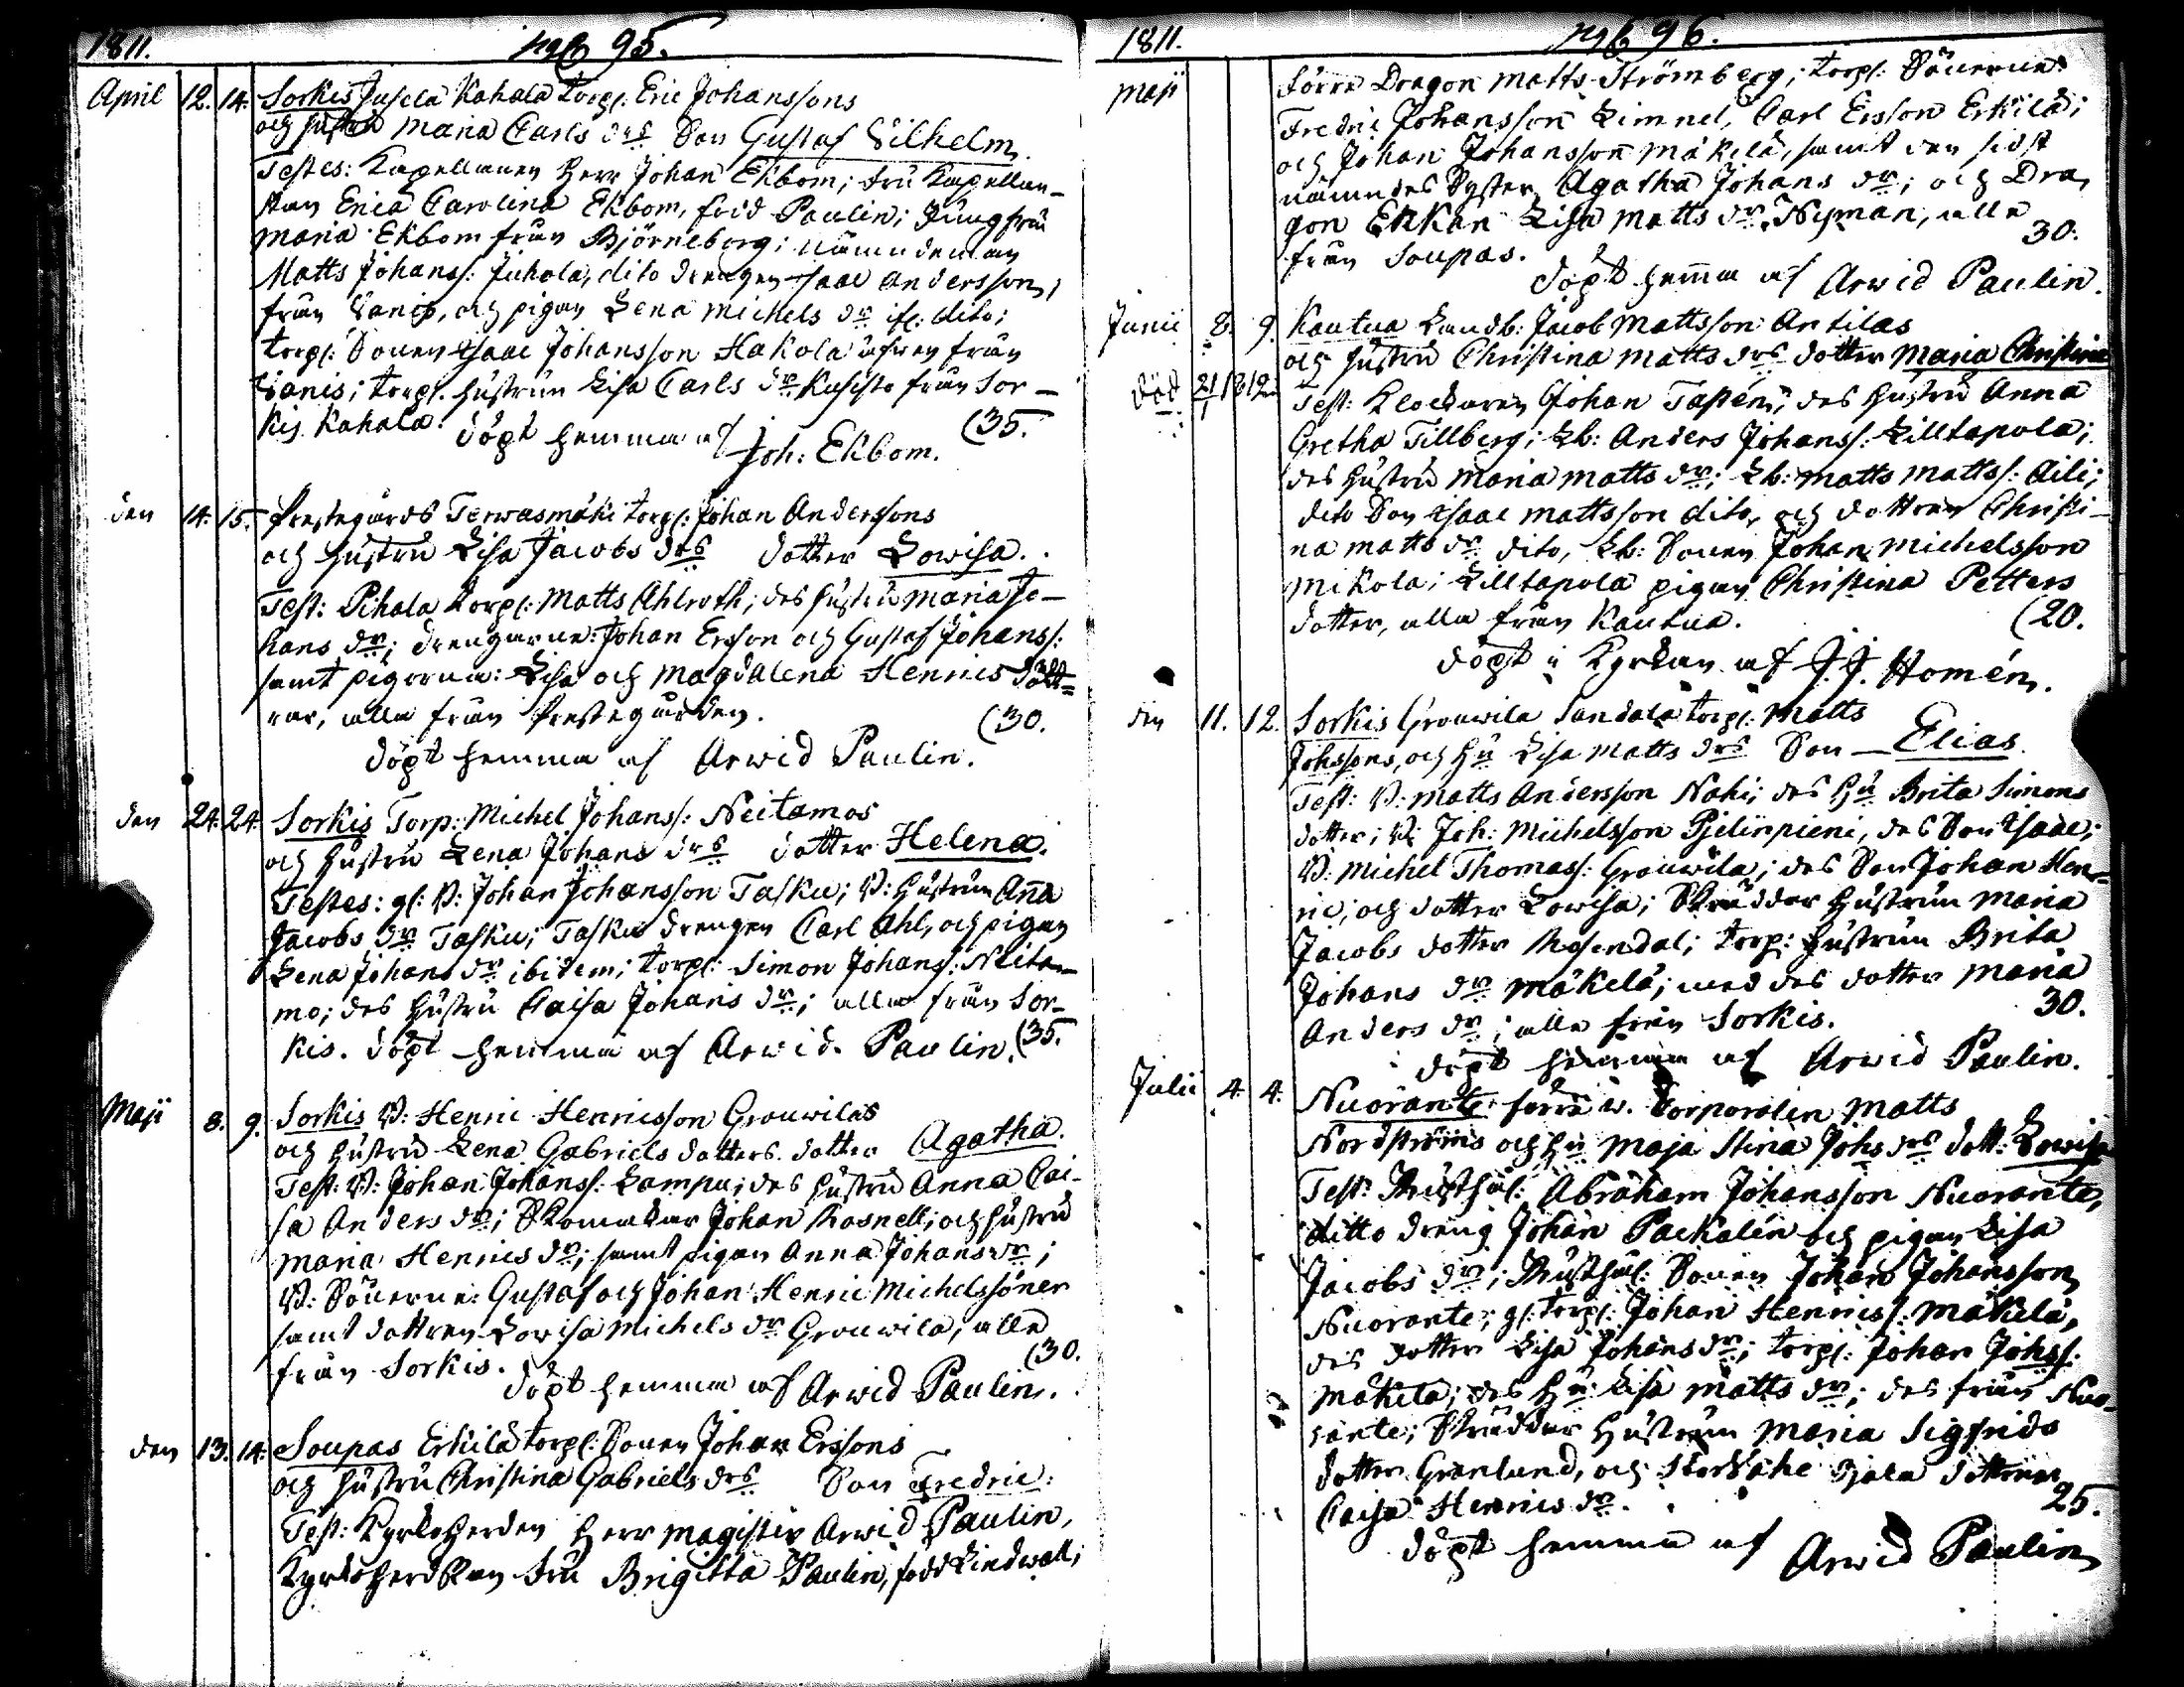 1811. pag 95.
April 12. 14. Sorkis Jusela Kahala torp: Eric Johanssons
och hustru Maria Carls drs Son Gustaf Wilhelm.
Testes: Kapellanen Herr Johan Ekbom; Fru Kapellan-
skan Erica Carolina Ekbom, född Paulin; Jungfru
Maria Ekbom från Björneborg; Nämndeman
Matts Johanss: Juhola, dito drengen Isaac Andersson,
från Vanis, och pigan Lena Michels dr ifr: dito;
torp: Sonen Isaac Johansson Hakola äfven från
Vanis; torp. hustrun Lisa Carls dr från Sor-
kis Kahala. (35.
döpt hemma af Joh: Ekbom.
den 14. 15. Prestegårds Terwasmäki torp: Johan Anderssons
och hustru Lisa Jacobs drs dotter Lowisa.
Test: Pihala torp: Matts Ahlroth; des hustru Maria Jo-
hans dr; drengarne: Johan Ersson och Gustaf Johanss:
samt pigorna: Lisa och Magdalena Henrics dött-
rar, alla från Prestegården. (30.
döpt hemma af Arwid Paulin.
den 24. 24. Sorkis Torp: Michel Johanss: Neitamos
och hustru Lena Johans drs dotter Helena.
Testes: gl: B: Johan Johansson Tasku; B: hustrun Anna
Jacobs dr Tasku; Tasku drengen Carl Ahl, och pigan
Lena Johans dr ibidem; torp: Simon Johans: Neita-
mo; des hustru Caisa Johans dr; alla från Sor-
kis. döpt hemma af Arwid Paulin. (35.
Maji 8. 9. Sorkis B: Henric Henricsson Grouwilas
och hustru Lena Gabriels dotters dotter Agatha.
Test: B: Johan Johanss: Lampu; des hustru Anna Cai-
sa Anders dr; Skomakar Johan Rosnell; och hustru
Maria Henrics dr; samt pigan Anna Johans dr;
B: Sönerne: Gustaf och Johan Henric Michelssöner
samt dottren Lowisa Michels dr Grouwila, alla
från Sorkis. (30.
döpt hemma af Arwid Paulin.
den 13. 14. Soupas Erkilä torp: Sonen Johan Erssons
och hustru Christina Gabriels drs Son Fredric.
Test: Kyrkoherden Herr Magister Arwid Paulin,
Kyrkoherdskan Fru Brigitta Paulin, född Lindwall;
1811. pag 96.
Maji förre Dragon Matts Strömberg; torp: Sönerne
Fredric Johansson Limnel, Carl Ersson Erkilä;
och Johan Johansson Mäkilä, samt den sidst
nämndes Syster Agatha Johans dr; och Dra,
gon Enkan Lisa Matts dr Nyman, alla
från Soupas. 30.
döpt hemma af Arwid Paulin.
Junii 8. 9. Kautua Landb: Jacob Mattsson Antilas
och hustru Christina Matts drs dotter Maria Christina
död 21/1 1812 Test: Klockaren Johan Tasten; des hustru Anna
Gretha Tillberg; Lb: Anders Johanss: Lilltapola;
des hustru Maria Matts dr; Lb: Matts Mattss: Aili;
dito Son Isaac Mattsson dito, och dottren Christi-
na Matts dr dito, Lb: Sonen Johan Michelsson
Mikola; Lilltapola pigan Christina Petters
dotter, alla från Kautua. (20.
döpt i Kyrkan af J. J. Homén.
den 11. 12. Sorkis Grouwila Sandala torp: Matts
Johssons, och Hu Lisa Matts drs Son — Elias.
Test: B: Matts Andersson Nohi; des Hu Brita Simons
dotter; B: Joh: Michelsson Pjelinpieni, des Son Isaac;
B: Michel Thomass: Grouwila; des Son Johan Hen-
ric, och dotter Lowisa; Skräddar hustrun Maria
Jacobs dotter Rosendal; torp: hustrun Brita
Johans dr Mäkelä; med des dotter Maria
Anders dr; alla från Sorkis. 30.
döpt hemma af Arwid Paulin.
Julii 4. 4. Nuorante förre v. Corporalen Matts
Nordströms och Hu Maja Stina Johs drs dott: Lowisa
Test: Rusthål: Abraham Johansson Nuorante,
ditto dreng Johan Packalén och pigan Lisa
Jacobs dr; Rusthål: Sonen Johan Johansson
Nuorante; gl: torp: Johan Henricss: Mäkelä,
des dotter Lisa Johans dr; torp: Johan Johss:
Mäkelä; des Hu Lisa Matts dr; des från Nuo-
rante; Skräddar Hustrun Maria Sigfrids
dotter Granlund, och
Caisa Henrics dr. 25.
döpt hemma af Arwid Paulin